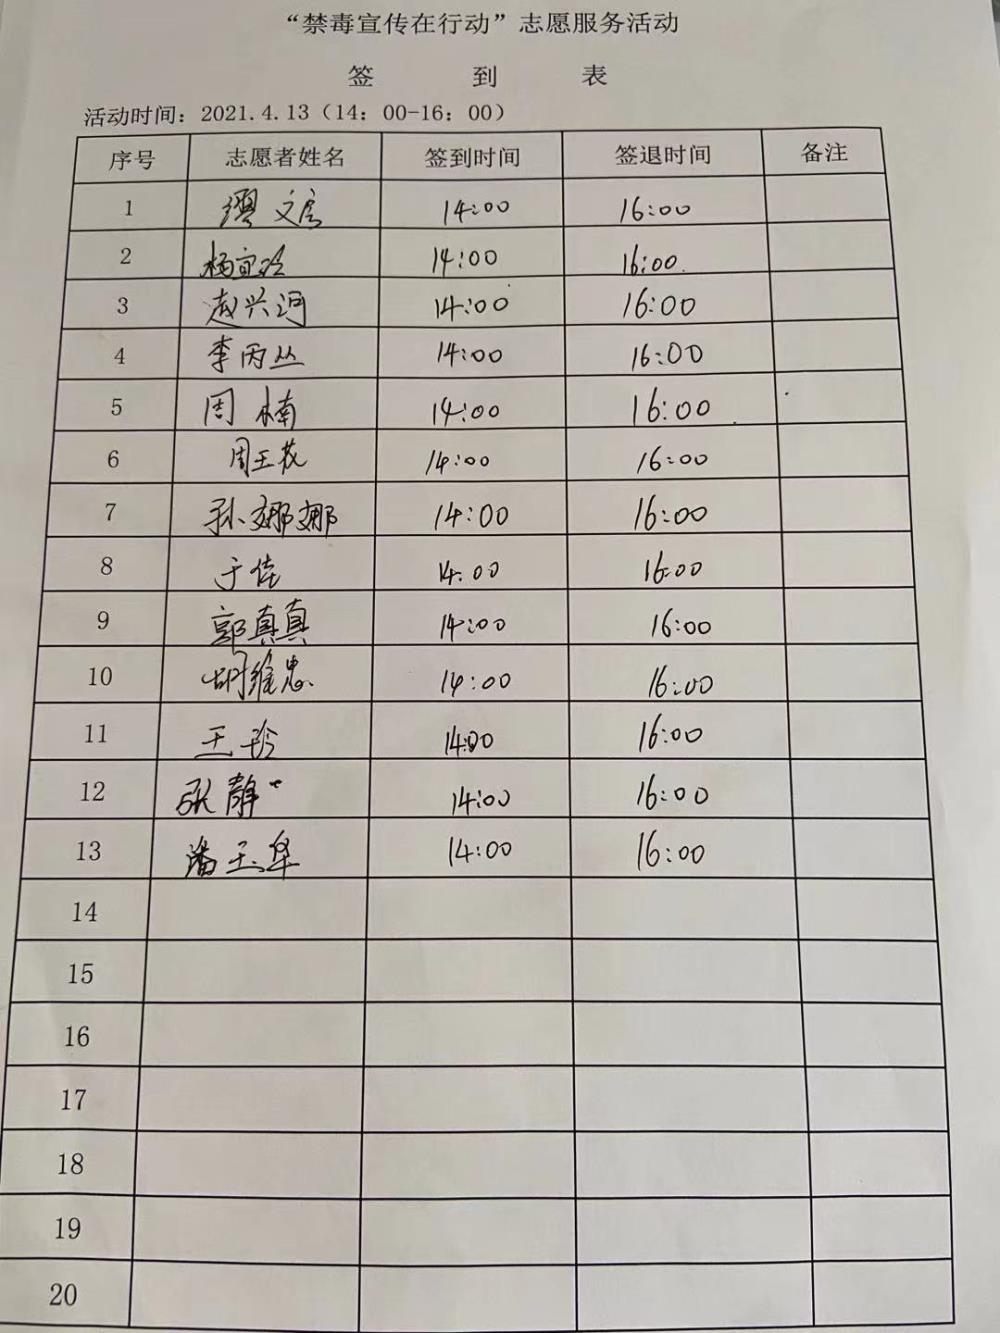 “禁毒宣传在行动”志愿服务活动
签 到 表
活动时间：2021.4.13（14：00-16：00）
序号 志愿者姓名 签到时间 签退时间 备注
1 缪文房 14:00 16:00
2 杨宜玲 14:00 16:00
3 赵兴河 14:00 16:00
4 李丙丛 14:00 16:00
5 周楠 14:00 16:00
6 周玉花 14:00 16:00
7 孙娜娜 14:00 16:00
8 于佳 14:00 16:00
9 郭真真 14:00 16:00
10 胡维忠 14:00 16:00
11 王玲 14:00 16:00
12 张静 14:00 16:00
13 潘玉华 14:00 16:00
14
15
16
17
18
19
20